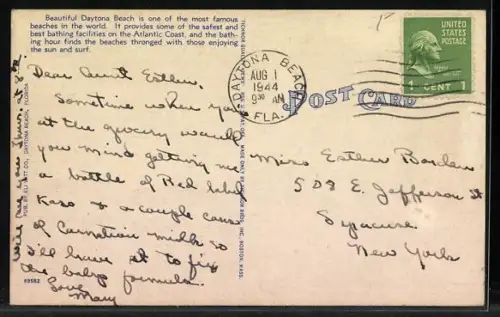 Beautiful Daytona Beach is one of the most famous
beaches in the world. It provides some of the safest and
best bathing facilities on the Atlantic Coast, and the bath-
ing hour finds the beaches thronged with those enjoying
the sun and surf.
Dear Aunt Esther,
Sometime when you
at the grocery would
you mind getting me
a bottle of Red label
Karo & a couple cans
of Carnation milk so
I'll have it to fix
the baby formula.
Love
Mary
69582
PUB. BY ELI WITT CO., DAYTONA BEACH, FLORIDA
POST CARD
DAYTONA BEACH
AUG 1
1944
9 30 AM
FLA.
UNITED
STATES
POSTAGE
1 CENT 1
Miss Esther
508 E. Jefferson St
Syracuse
New York